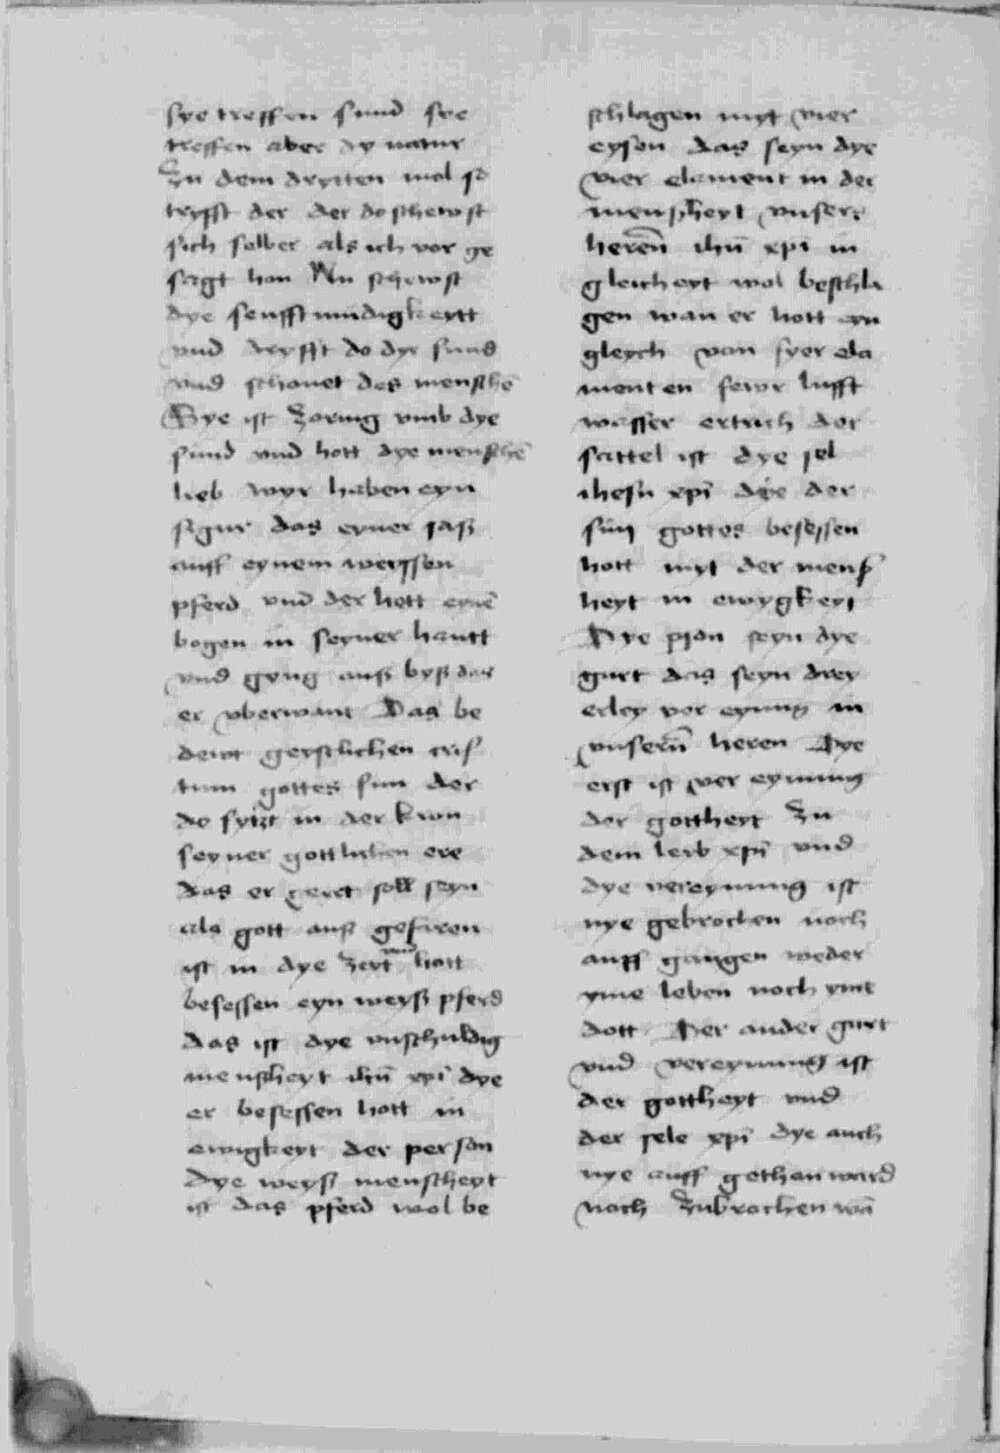 sye treffen sund sye
treffen aber dy natur
Zu dem drytten mol so
tryfft der der do schewst
sich selber als ich vor ge
sagt hon Nu schewst
dye senfftmüdigkeytt
vnd dryfft do dyr sund
vnd schonet des menschē
Dye ist zornig vmb dye
sund vnd hott dye menschē
lieb wyr haben eyn
figur das eyner saß
auff eynem weyssen
pferd vnd der hett eynē
bogen in seyner hantt
vnd gyng auß byß das
er vberwant Das be
dewt geystlichen cris
tum gottes sun der
do sytzt in der kron
seyner gottlichen ere
das er geert soll seyn
als gott auß gefaren
ist in dye zeyt vnd hott
besessen eyn weyß pferd
das ist dye vnschuldig
menscheyt ihū xpī dye
er besessen hott in
ewigkeyt der person
Dye weyß menscheyt
ist das pferd wol be
schlagen myt vier
eysen das seyn dye
vier element in der
menscheyt vnsers
herēn ihū xpī in
gleicheyt wol beschla
gen wan er hott eyn
gleych von fyer ela
menten fewr lufft
wasser ertrich der
sattel ist dye sel
ihesu xpī dye der
sun gottes besessen
hott myt der mensch
heyt in ewygkeyt
Dye seyn dye
gurt das seyn drey
erley vereynung in
vnserñ heren Dye
erst ist vereynung
der gottheyt zu
dem leib xpī vnd
dye vereynung ist
nye gebrochen noch
auff gangen weder
yme leben noch yme
dott Der ander gurt
vnd vereynung ist
der gottheyt vnd
der sele xpī dye auch
nye auff gethan ward
noch zubrochen wā